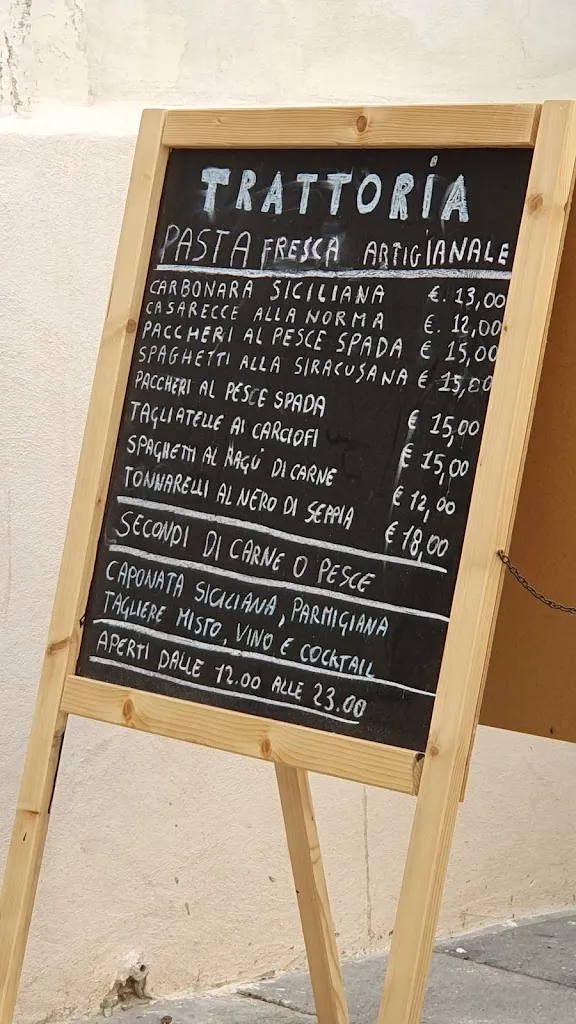 TRATTORIA
PASTA FRESCA ARTIGIANALE
CARBONARA SICILIANA €. 13,00
CASARECCE ALLA NORMA €. 12,00
PACCHERI AL PESCE SPADA € 15,00
SPAGHETTI ALLA SIRACUSANA € 15,00
PACCHERI AL PESCE SPADA € 15,00
TAGLIATELLE AI CARCIOFI € 15,00
SPAGHETTI AL RAGÙ DI CARNE € 12,00
TONNARELLI AL NERO DI SEPPIA € 18,00
SECONDI DI CARNE O PESCE
CAPONATA SICILIANA, PARMIGIANA
TAGLIERE MISTO, VINO E COCKTAIL
APERTI DALLE 12.00 ALLE 23.00